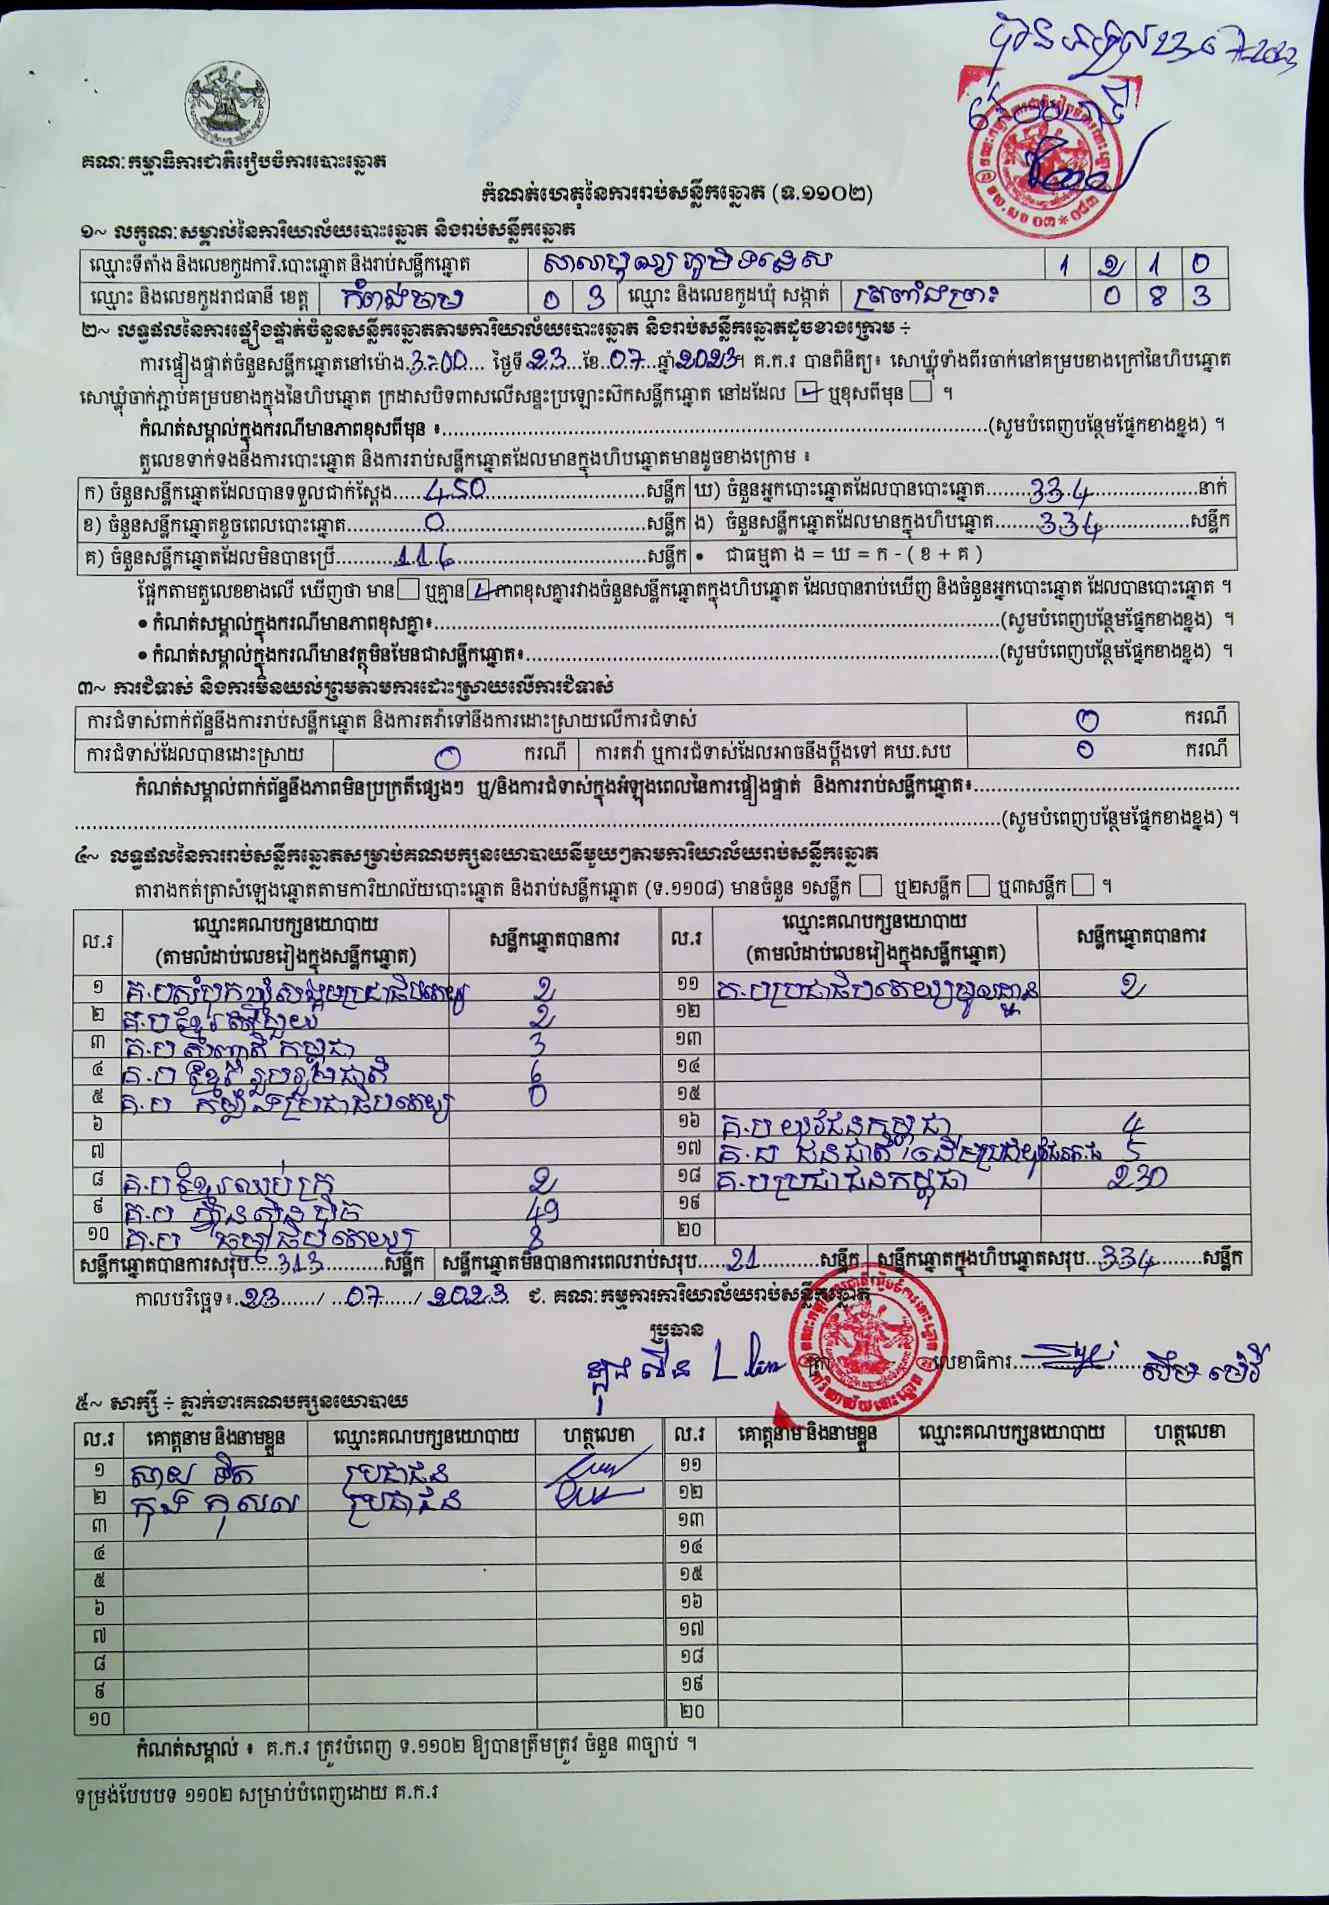 គណៈកម្មាធិការជាតិរៀបចំការបោះឆ្នោត
កំណត់ហេតុនៃការរាប់សន្លឹកឆ្នោត (ទ.១១០២)
១~ លក្ខណៈសម្គាល់នៃការិយាល័យបោះឆ្នោត និងរាប់សន្លឹកឆ្នោត
ឈ្មោះទីតាំង និងលេខកូដការិ.បោះឆ្នោត និងរាប់សន្លឹកឆ្នោត 1 2 1 0
ឈ្មោះ និងលេខកូដរាជធានី ខេត្ត កំពង់ចាម 0 3 ឈ្មោះ និងលេខកូដឃុំ សង្កាត់ ត្រពាំងព្រះ 0 8 3
២~ លទ្ធផលនៃការផ្ទៀងផ្ទាត់ចំនួនសន្លឹកឆ្នោតតាមការិយាល័យបោះឆ្នោត និងរាប់សន្លឹកឆ្នោតដូចខាងក្រោម ÷
ការផ្ទៀងផ្ទាត់ចំនួនសន្លឹកឆ្នោតនៅម៉ោង.3:00.... ថ្ងៃទី.23...ខែ.07...ឆ្នាំ2023។ គ.ក.រ បានពិនិត្យ៖ សោឃ្លុំទាំងពីរចាក់នៅគម្របខាងក្រៅនៃហិបឆ្នោត
សោឃ្លុំចាក់ភ្ជាប់គម្របខាងក្នុងនៃហិបឆ្នោត ក្រដាសបិទពាសលើសន្ទះប្រឡោះស៊កសន្លឹកឆ្នោត នៅដដែល ☑ ឬខុសពីមុន ☐ ។
កំណត់សម្គាល់ក្នុងករណីមានភាពខុសពីមុន ៖..........(សូមបំពេញបន្ថែមផ្នែកខាងខ្នង) ។
តួលេខទាក់ទងនឹងការបោះឆ្នោត និងការរាប់សន្លឹកឆ្នោតដែលមានក្នុងហិបឆ្នោតមានដូចខាងក្រោម ៖
ក) ចំនួនសន្លឹកឆ្នោតដែលបានទទួលជាក់ស្តែង......450......សន្លឹក ឃ) ចំនួនអ្នកបោះឆ្នោតដែលបានបោះឆ្នោត......334......នាក់
ខ) ចំនួនសន្លឹកឆ្នោតខូចពេលបោះឆ្នោត......0......សន្លឹក ង) ចំនួនសន្លឹកឆ្នោតដែលមានក្នុងហិបឆ្នោត......334......សន្លឹក
គ) ចំនួនសន្លឹកឆ្នោតដែលមិនបានប្រើ......116......សន្លឹក • ជាធម្មតា ង = ឃ = ក - ( ខ + គ )
ផ្អែកតាមតួលេខខាងលើ ឃើញថា មាន ☐ ឬគ្មាន ☑ ភាពខុសគ្នារវាងចំនួនសន្លឹកឆ្នោតក្នុងហិបឆ្នោត ដែលបានរាប់ឃើញ និងចំនួនអ្នកបោះឆ្នោត ដែលបានបោះឆ្នោត ។
• កំណត់សម្គាល់ក្នុងករណីមានភាពខុសគ្នា៖..........(សូមបំពេញបន្ថែមផ្នែកខាងខ្នង) ។
• កំណត់សម្គាល់ក្នុងករណីមានវត្ថុមិនមែនជាសន្លឹកឆ្នោត៖..........(សូមបំពេញបន្ថែមផ្នែកខាងខ្នង) ។
៣~ ការជំទាស់ និងការមិនយល់ព្រមតាមការដោះស្រាយលើការជំទាស់
ការជំទាស់ពាក់ព័ន្ធនឹងការរាប់សន្លឹកឆ្នោត និងការតវ៉ាទៅនឹងការដោះស្រាយលើការជំទាស់ 0 ករណី
ការជំទាស់ដែលបានដោះស្រាយ 0 ករណី ការតវ៉ា ឬការជំទាស់ដែលអាចនឹងប្តឹងទៅ គឃ.សប 0 ករណី
កំណត់សម្គាល់ពាក់ព័ន្ធនឹងភាពមិនប្រក្រតីផ្សេងៗ ឬ/និងការជំទាស់ក្នុងអំឡុងពេលនៃការផ្ទៀងផ្ទាត់ និងការរាប់សន្លឹកឆ្នោត៖..........
..........(សូមបំពេញបន្ថែមផ្នែកខាងខ្នង) ។
៤~ លទ្ធផលនៃការរាប់សន្លឹកឆ្នោតសម្រាប់គណបក្សនយោបាយនីមួយៗតាមការិយាល័យរាប់សន្លឹកឆ្នោត
តារាងកត់ត្រាសំឡេងឆ្នោតតាមការិយាល័យបោះឆ្នោត និងរាប់សន្លឹកឆ្នោត (ទ.១១០៨) មានចំនួន ១សន្លឹក ☐ ឬ២សន្លឹក ☐ ឬ៣សន្លឹក ☐ ។
ល.រ ឈ្មោះគណបក្សនយោបាយ (តាមលំដាប់លេខរៀងក្នុងសន្លឹកឆ្នោត) សន្លឹកឆ្នោតបានការ ល.រ ឈ្មោះគណបក្សនយោបាយ (តាមលំដាប់លេខរៀងក្នុងសន្លឹកឆ្នោត) សន្លឹកឆ្នោតបានការ
១ គ.បសំបុកឃ្មុំសង្គមប្រជាធិបតេយ្យ 2 ១១ គ.បប្រជាធិបតេយ្យមូលដ្ឋាន 2
២ 2 ១២
៣ 3 ១៣
៤ គ.ប ខ្មែររួបរួមជាតិ 6 ១៤
៥ គ.ប កម្លាំងប្រជាធិបតេយ្យ 0 ១៥
៦ ១៦ គ.ប យុវជនកម្ពុជា 4
៧ ១៧ 5
៨ គ.ប ខ្មែរឈប់ក្រ 2 ១៨ គ.បប្រជាជនកម្ពុជា 230
៩ គ.ប ហ្វ៊ុនស៊ិនប៉ិច 49 ១៩
១០ គ.ប ធម្មាធិបតេយ្យ 8 ២០
សន្លឹកឆ្នោតបានការសរុប.....313.....សន្លឹក សន្លឹកឆ្នោតមិនបានការពេលរាប់សរុប.....21.....សន្លឹក សន្លឹកឆ្នោតក្នុងហិបឆ្នោតសរុប...334.....សន្លឹក
កាលបរិច្ឆេទ៖.23....../...07....../.2023 ជ. គណៈកម្មការការិយាល័យរាប់សន្លឹកឆ្នោត
ប្រធាន
លេខាធិការ..........
៥~ សាក្សី ÷ ភ្នាក់ងារគណបក្សនយោបាយ
ល.រ គោត្តនាម និងនាមខ្លួន ឈ្មោះគណបក្សនយោបាយ ហត្ថលេខា ល.រ គោត្តនាម និងនាមខ្លួន ឈ្មោះគណបក្សនយោបាយ ហត្ថលេខា
១ ប្រជាជន ១១
២ គង់ កុសល ប្រជាជន ១២
៣ ១៣
៤ ១៤
៥ ១៥
៦ ១៦
៧ ១៧
៨ ១៨
៩ ១៩
១០ ២០
កំណត់សម្គាល់ ៖ គ.ក.រ ត្រូវបំពេញ ទ.១១០២ ឱ្យបានត្រឹមត្រូវ ចំនួន ៣ច្បាប់ ។
ទម្រង់បែបបទ ១១០២ សម្រាប់បំពេញដោយ គ.ក.រ